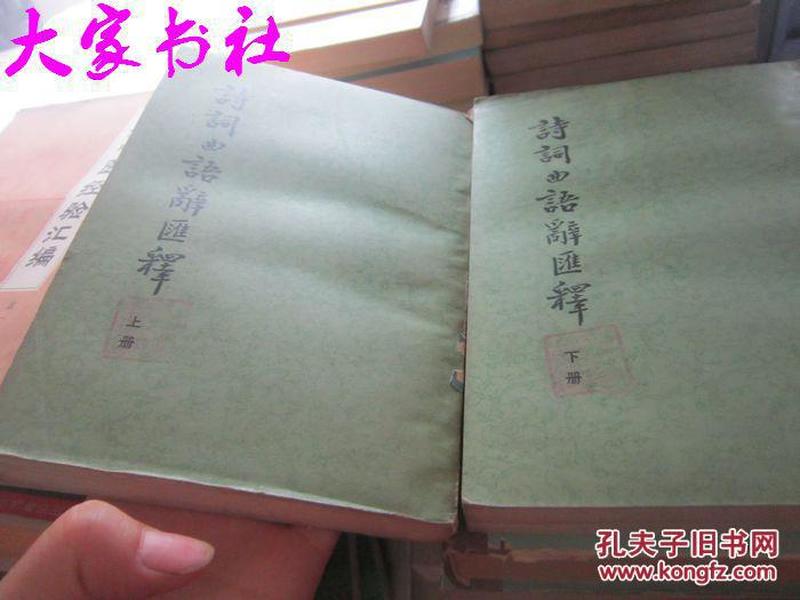 大家书社
詩詞曲語辭匯釋
上册
詩詞曲語辭匯釋
下册
验汇编
孔夫子旧书网
www.kongfz.com